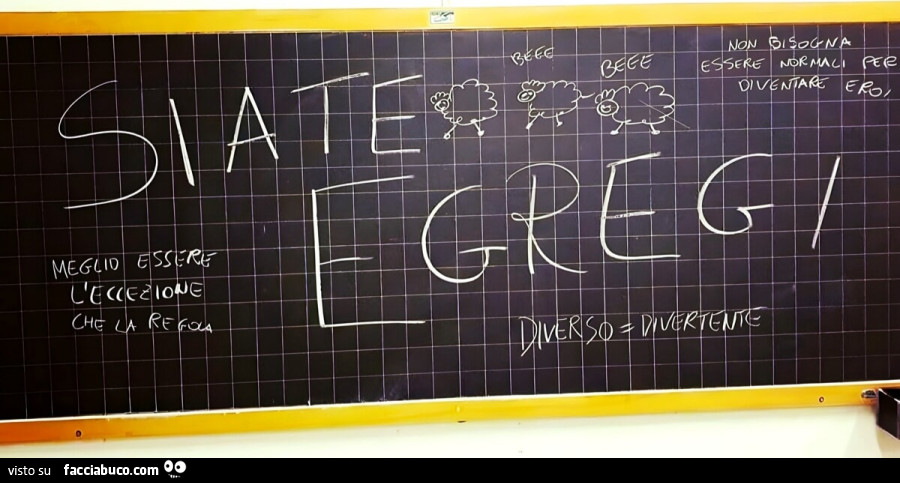 BEEE
BEEE
NON BISOGNA
ESSERE NORMALI PER
DIVENTARE EROI
SIATE
EGREGI
MEGLIO ESSERE
L'ECCEZIONE
CHE LA REGOLA
DIVERSO = DIVERTENTE
visto su facciabuco.com